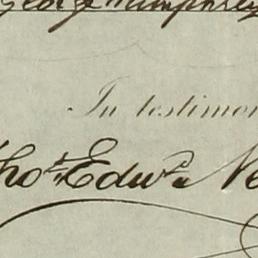 George Humphrey
In testimon
Tho.s Edw.d Ne